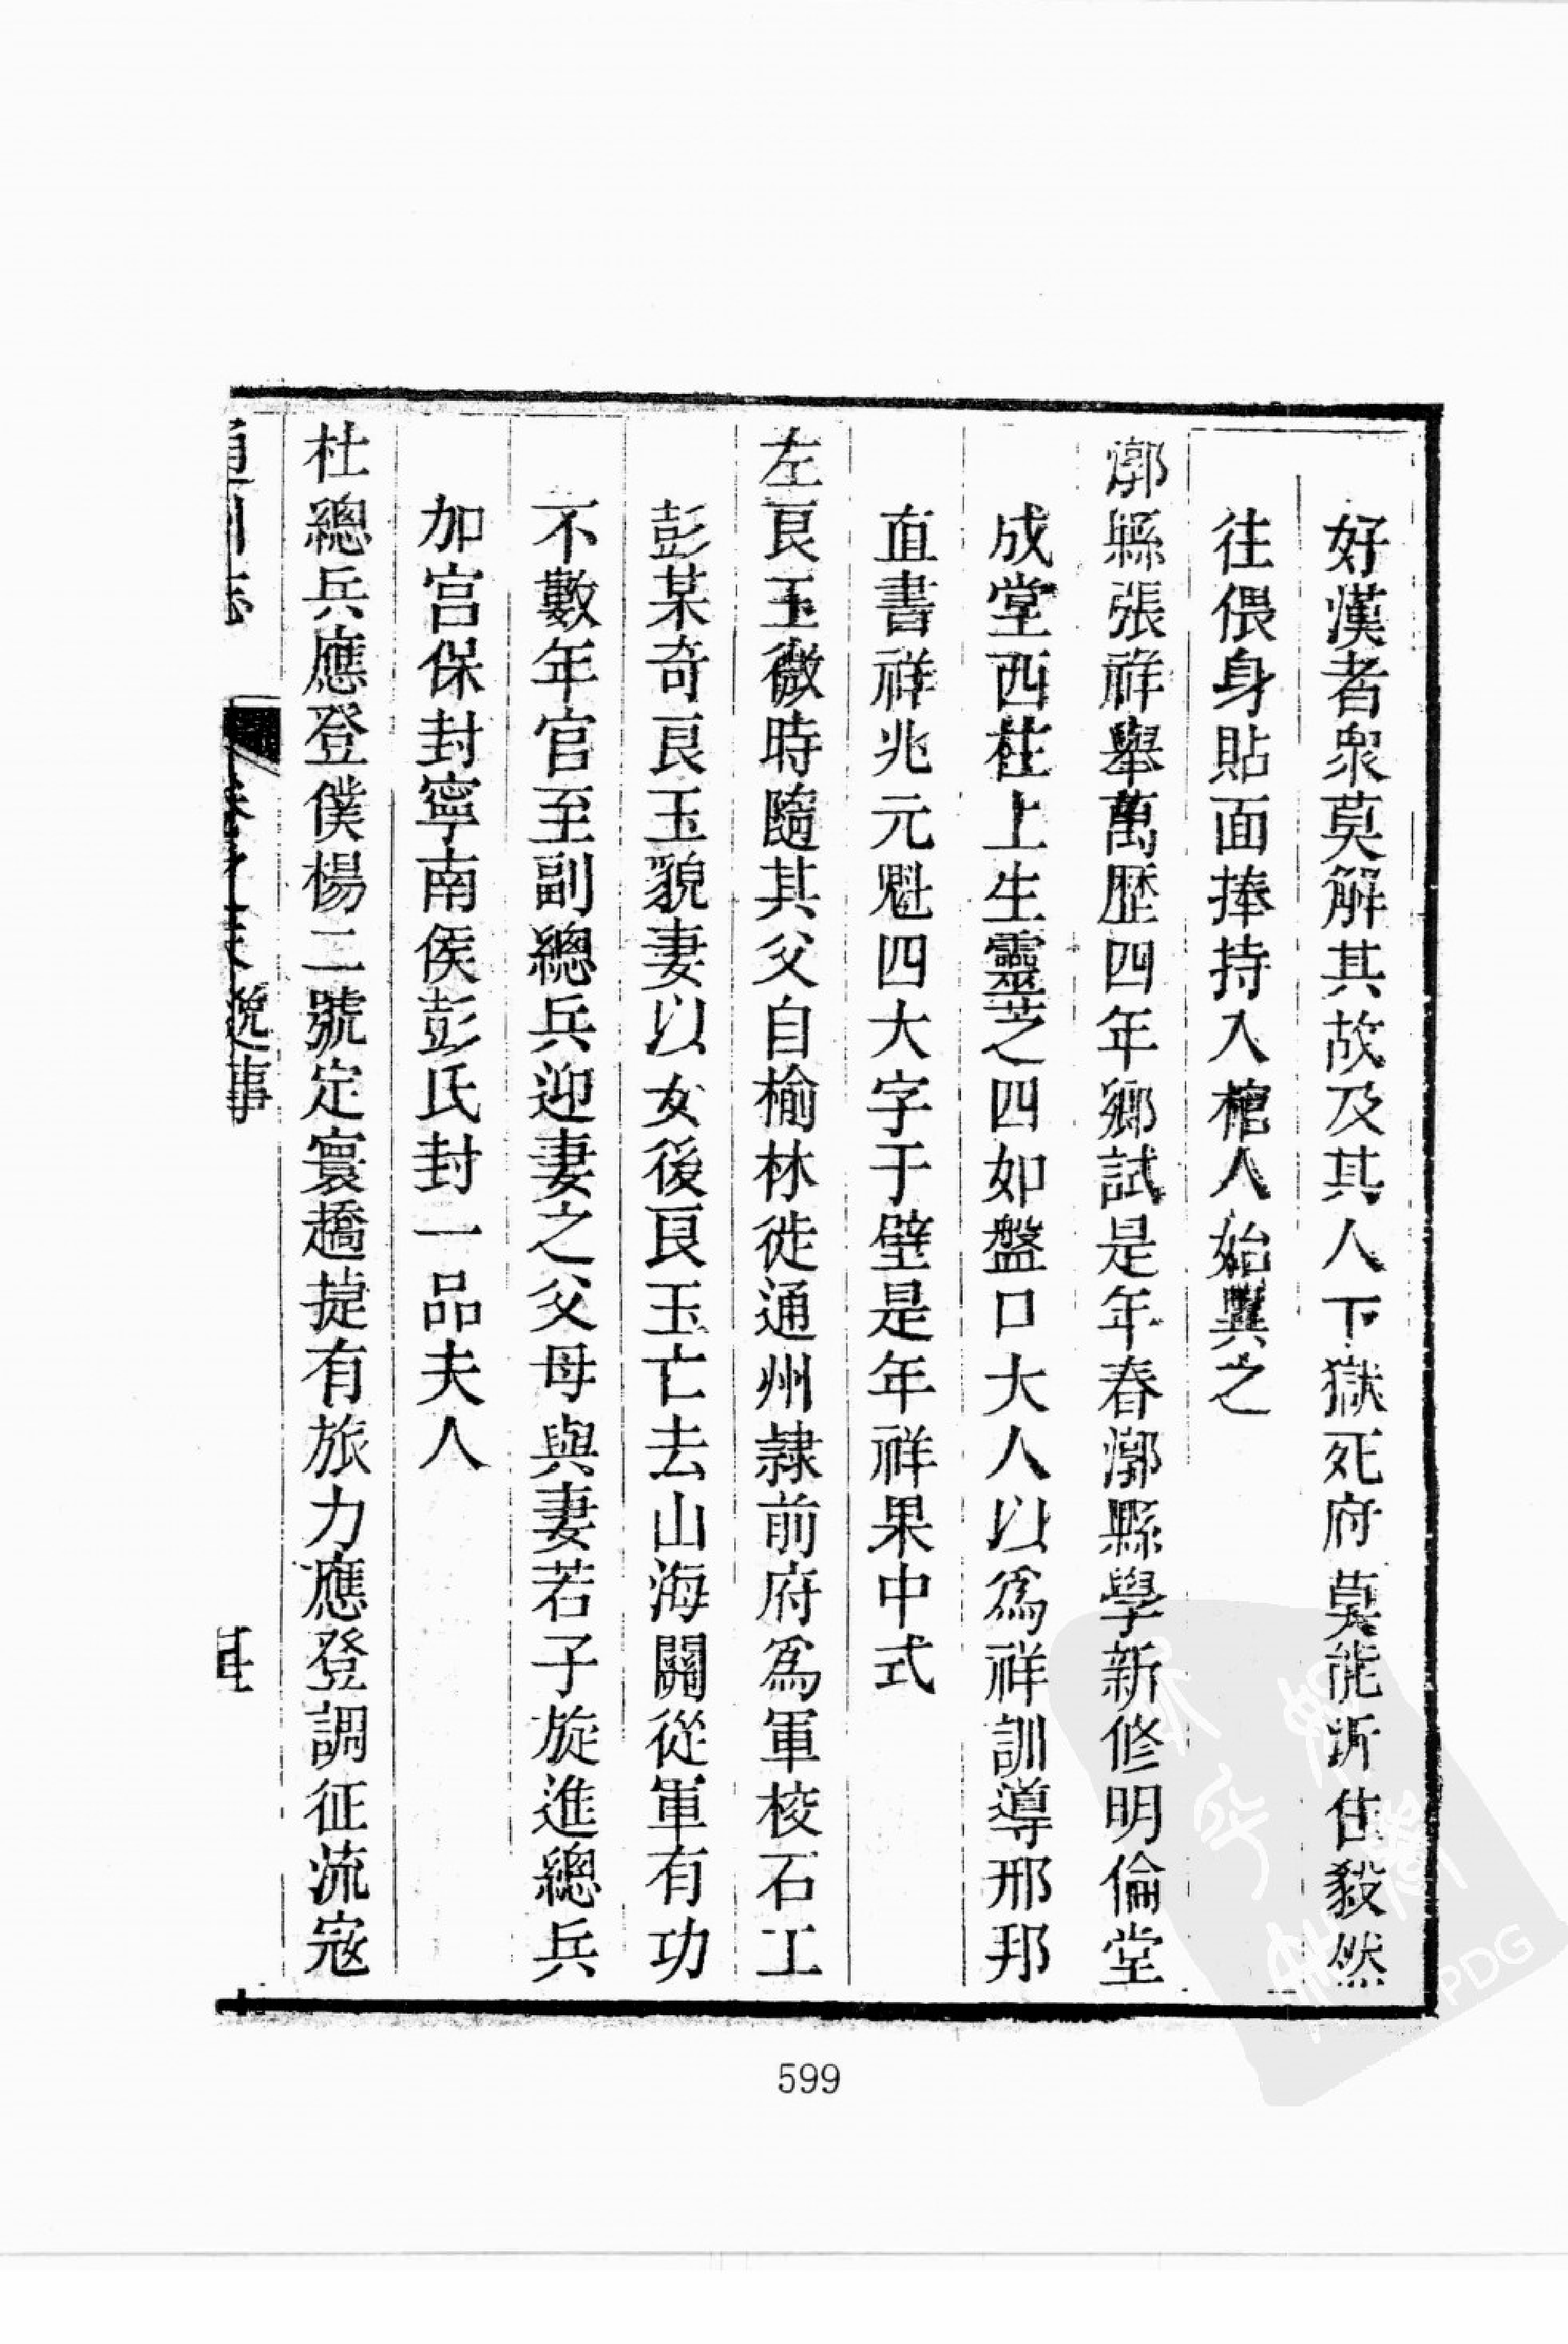 好漢者衆莫解其故及其人下獄死府莫能近佳毅然
往偎身貼面捧持入棺人始異之
漷縣張祥舉萬歷四年鄉試是年春漷縣學新修明倫堂
成堂西柱上生靈芝四如盤口大人以爲祥訓導邢邦
直書祥兆元魁四大字于壁是年祥果中式
左良玉微時隨其父自榆林徙通州隸前府爲軍校石工
彭某奇良玉貌妻以女後良玉亡去山海關從軍有功
不數年官至副總兵迎妻之父母與妻若子旋進總兵
加宮保封寧南侯彭氏封一品夫人
杜總兵應登僕楊二號定寰趫捷有旅力應登調征流寇
逸事
599
PDG